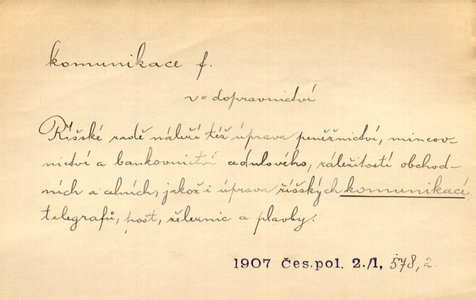 komunikace f.
v = dopravnictví
Říšské radě náleží též úprava peněžnictví, mincov-
nictví a bankovnictví cedulového, záležitostí obchod-
ních a celních, jakož i úprava říšských komunikací,
telegrafů, pošt, železnic a plavby.
1907 Čes. pol. 2./1, 578, 2.